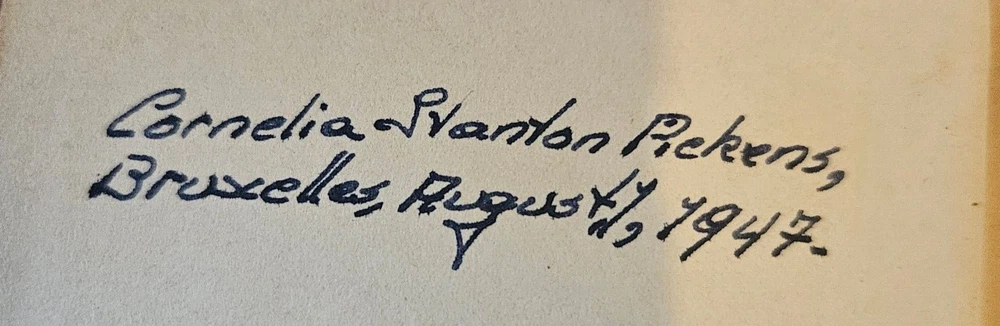 Cornelia Stanton Pickens,
Bruxelles, August, 1947.